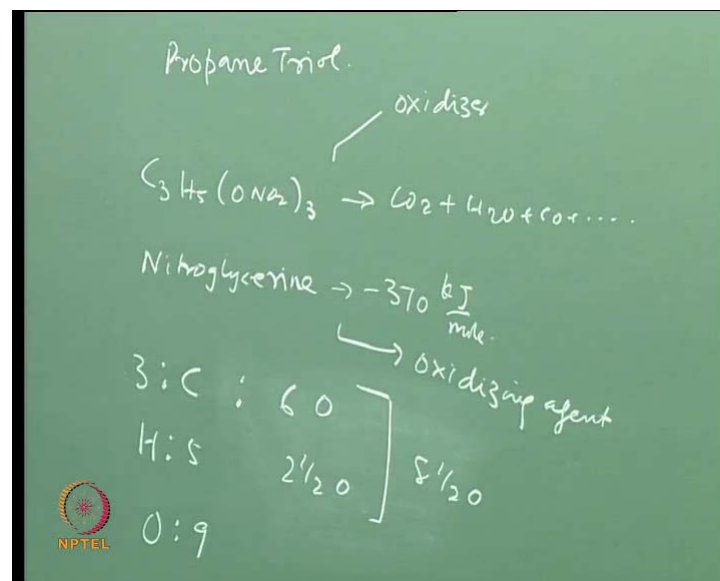 Propane Triol.
oxidizer
C3H5(ONO2)3 → CO2 + H2O + CO + ....
Nitroglycerine → -370 kJ/mole.
→ oxidizing agent
3 : C : 6 O
H : 5 2 1/2 O ] 8 1/2 O
O : 9
NPTEL